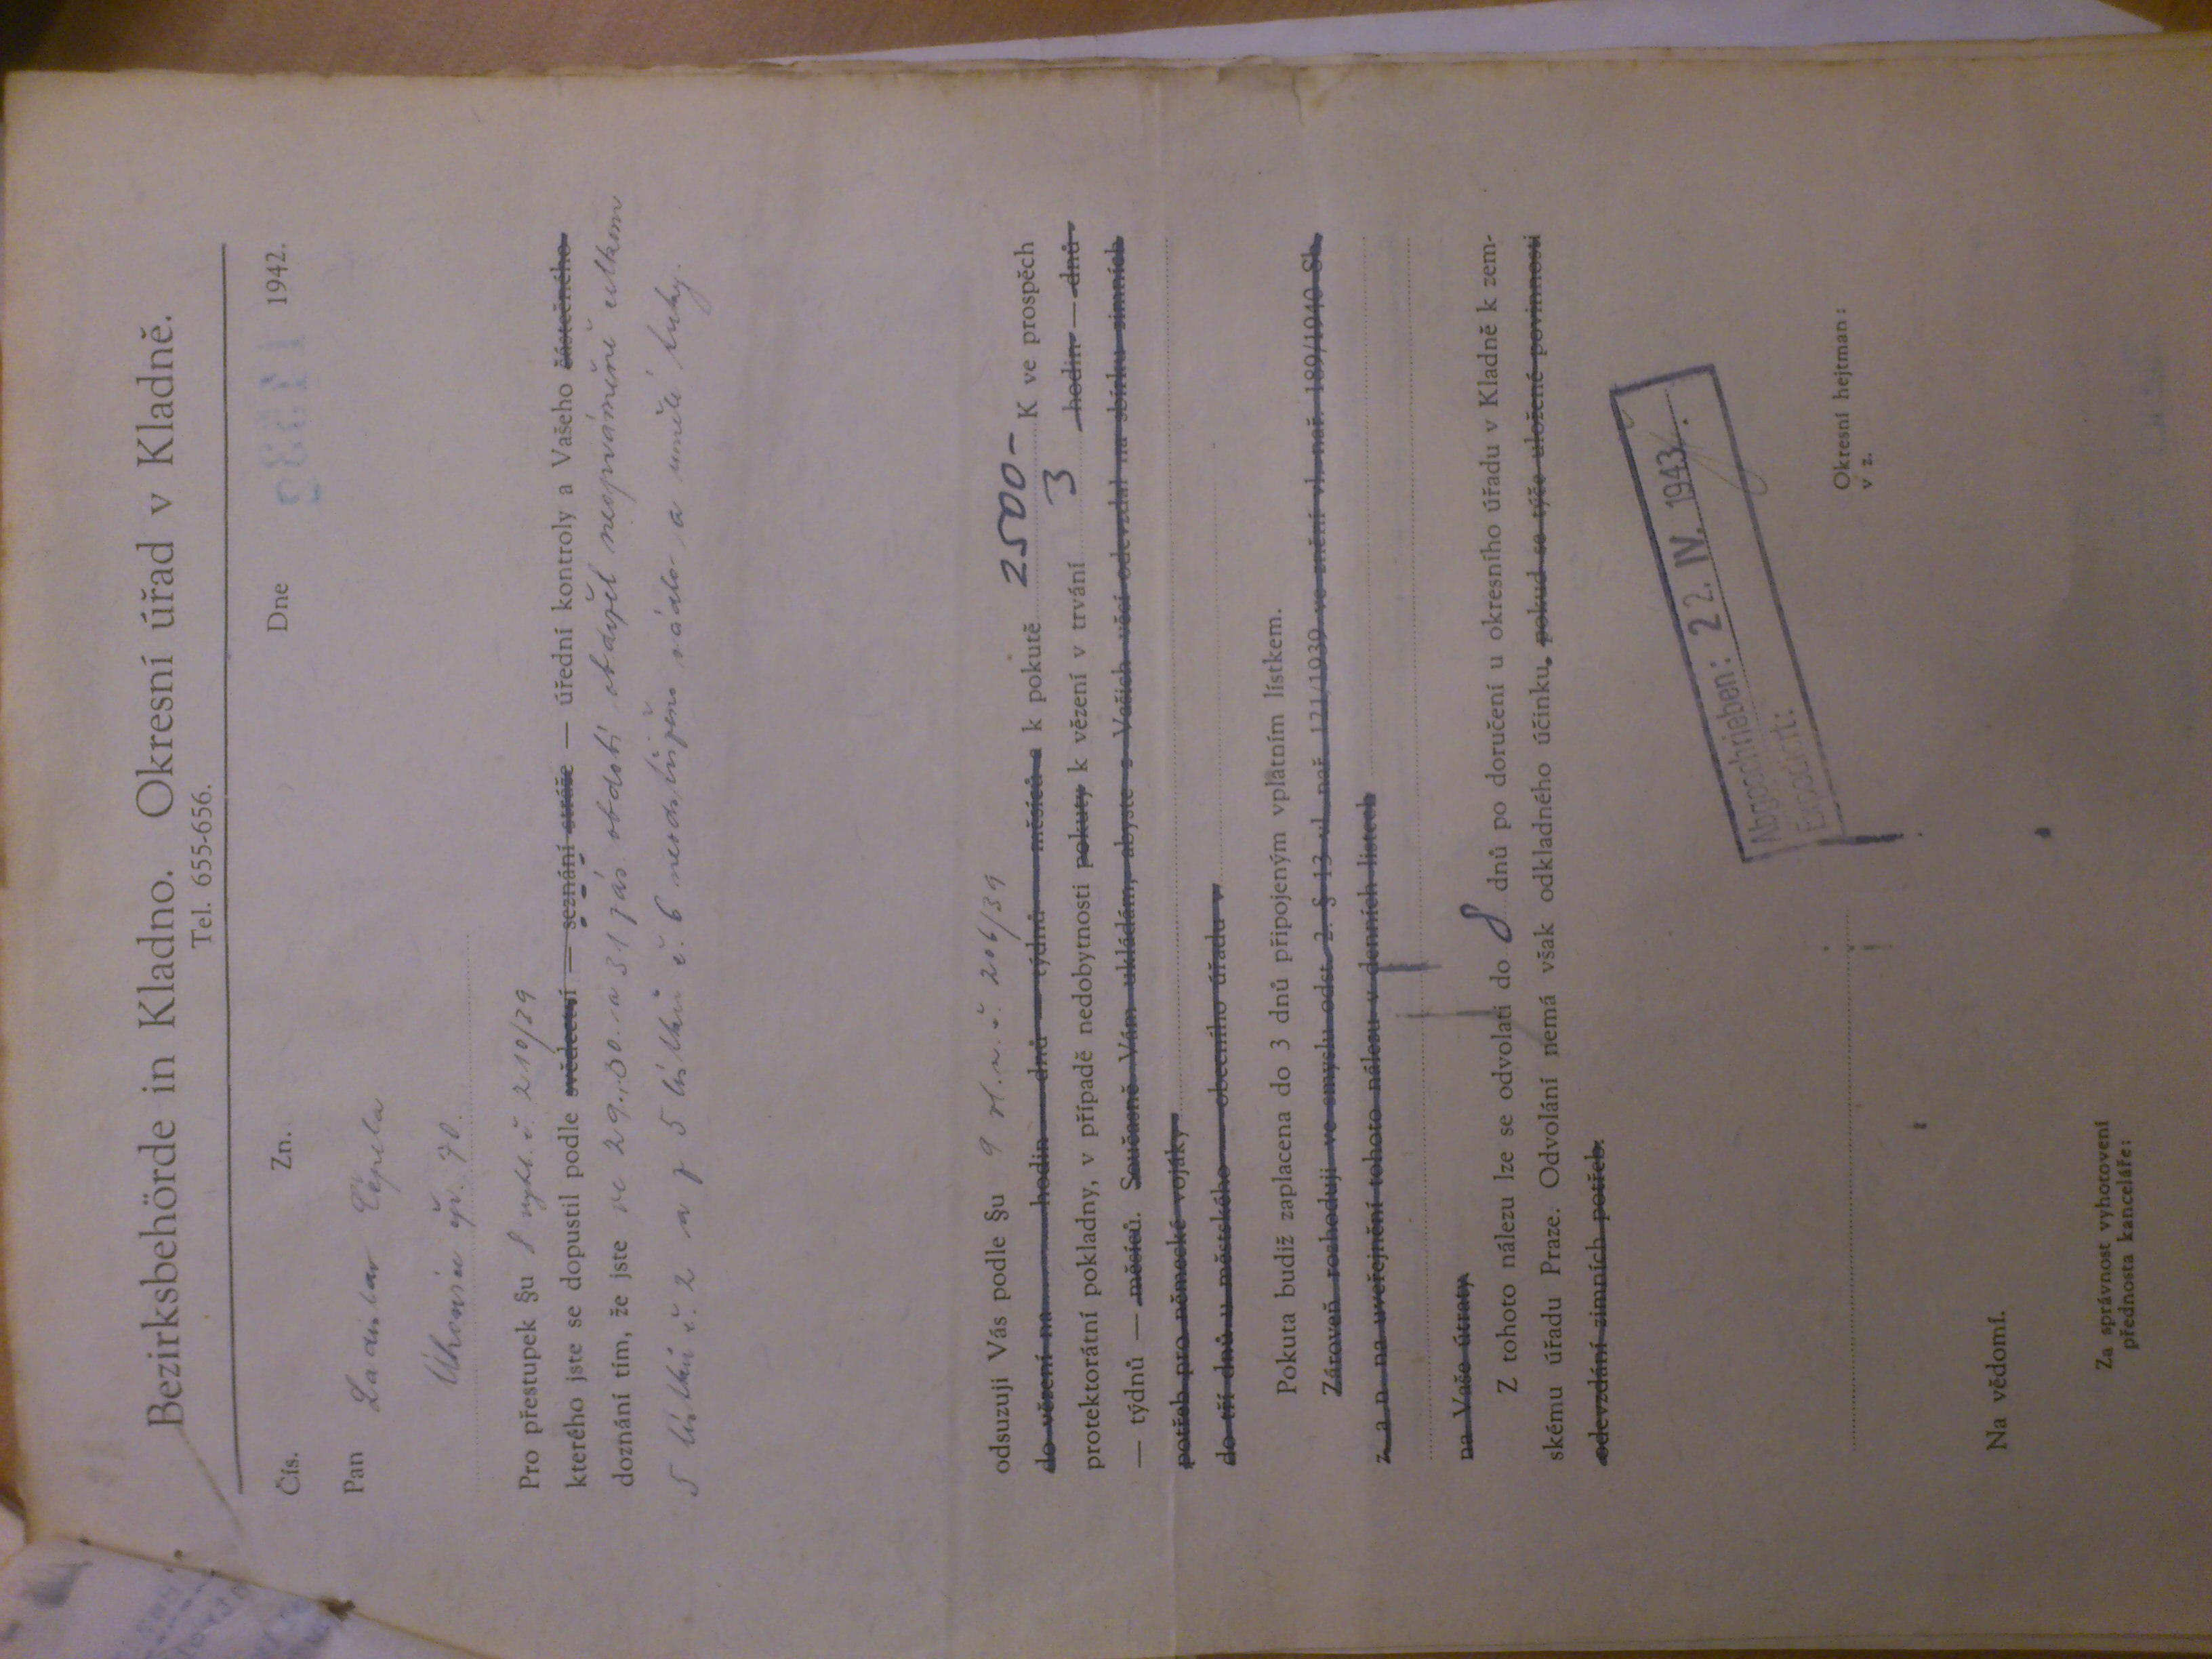 Bezirksbehörde in Kladno. Okresní úřad v Kladně.
Tel. 655-656.
Čís. Zn. Dne 1942.
Pan Ladislav Čepela
Úhonice čp. 70.
Pro přestupek §u 8 vyhl. č. 210/39
kterého jste se dopustil podle svědectví — seznání stráže — úřední kontroly a Vašeho částečného
doznání tím, že jste ve 29., 30. a 31 zás. období obdržel neoprávněně celkem
5 lístků č. 2 a z 5 lístků č. 6 neodstřiženo sádlo a umělé tuky.
odsuzuji Vás podle §u 9 vl. n. č. 206/39
do vězení na hodin — dnů — týdnů — měsíců a k pokutě 2500- K ve prospěch
protektorátní pokladny, v případě nedobytnosti pokuty k vězení v trvání 3 hodin — dnů
— týdnů — měsíců. Současně Vám ukládám, abyste z Vašich věcí odevzdal na sbírku zimních
potřeb pro německé vojáky
do tří dnů u městského — obecního úřadu v
Pokuta budiž zaplacena do 3 dnů připojeným vplatním lístkem.
Zároveň rozhoduji ve smyslu odst. 2. § 13 vl. nař. 121/1939 ve znění vl. nař. 189/1940 Sb.
z. a n. na uveřejnění tohoto nálezu v denních listech
na Vaše útraty.
Z tohoto nálezu lze se odvolati do 8 dnů po doručení u okresního úřadu v Kladně k zem-
skému úřadu Praze. Odvolání nemá však odkladného účinku, pokud se týče uložené povinnosti
odevzdání zimních potřeb.
Abgeschrieben: 22. IV. 1943
Expediert:
Okresní hejtman:
v z.
Na vědomí.
Za správnost vyhotovení
přednosta kanceláře: